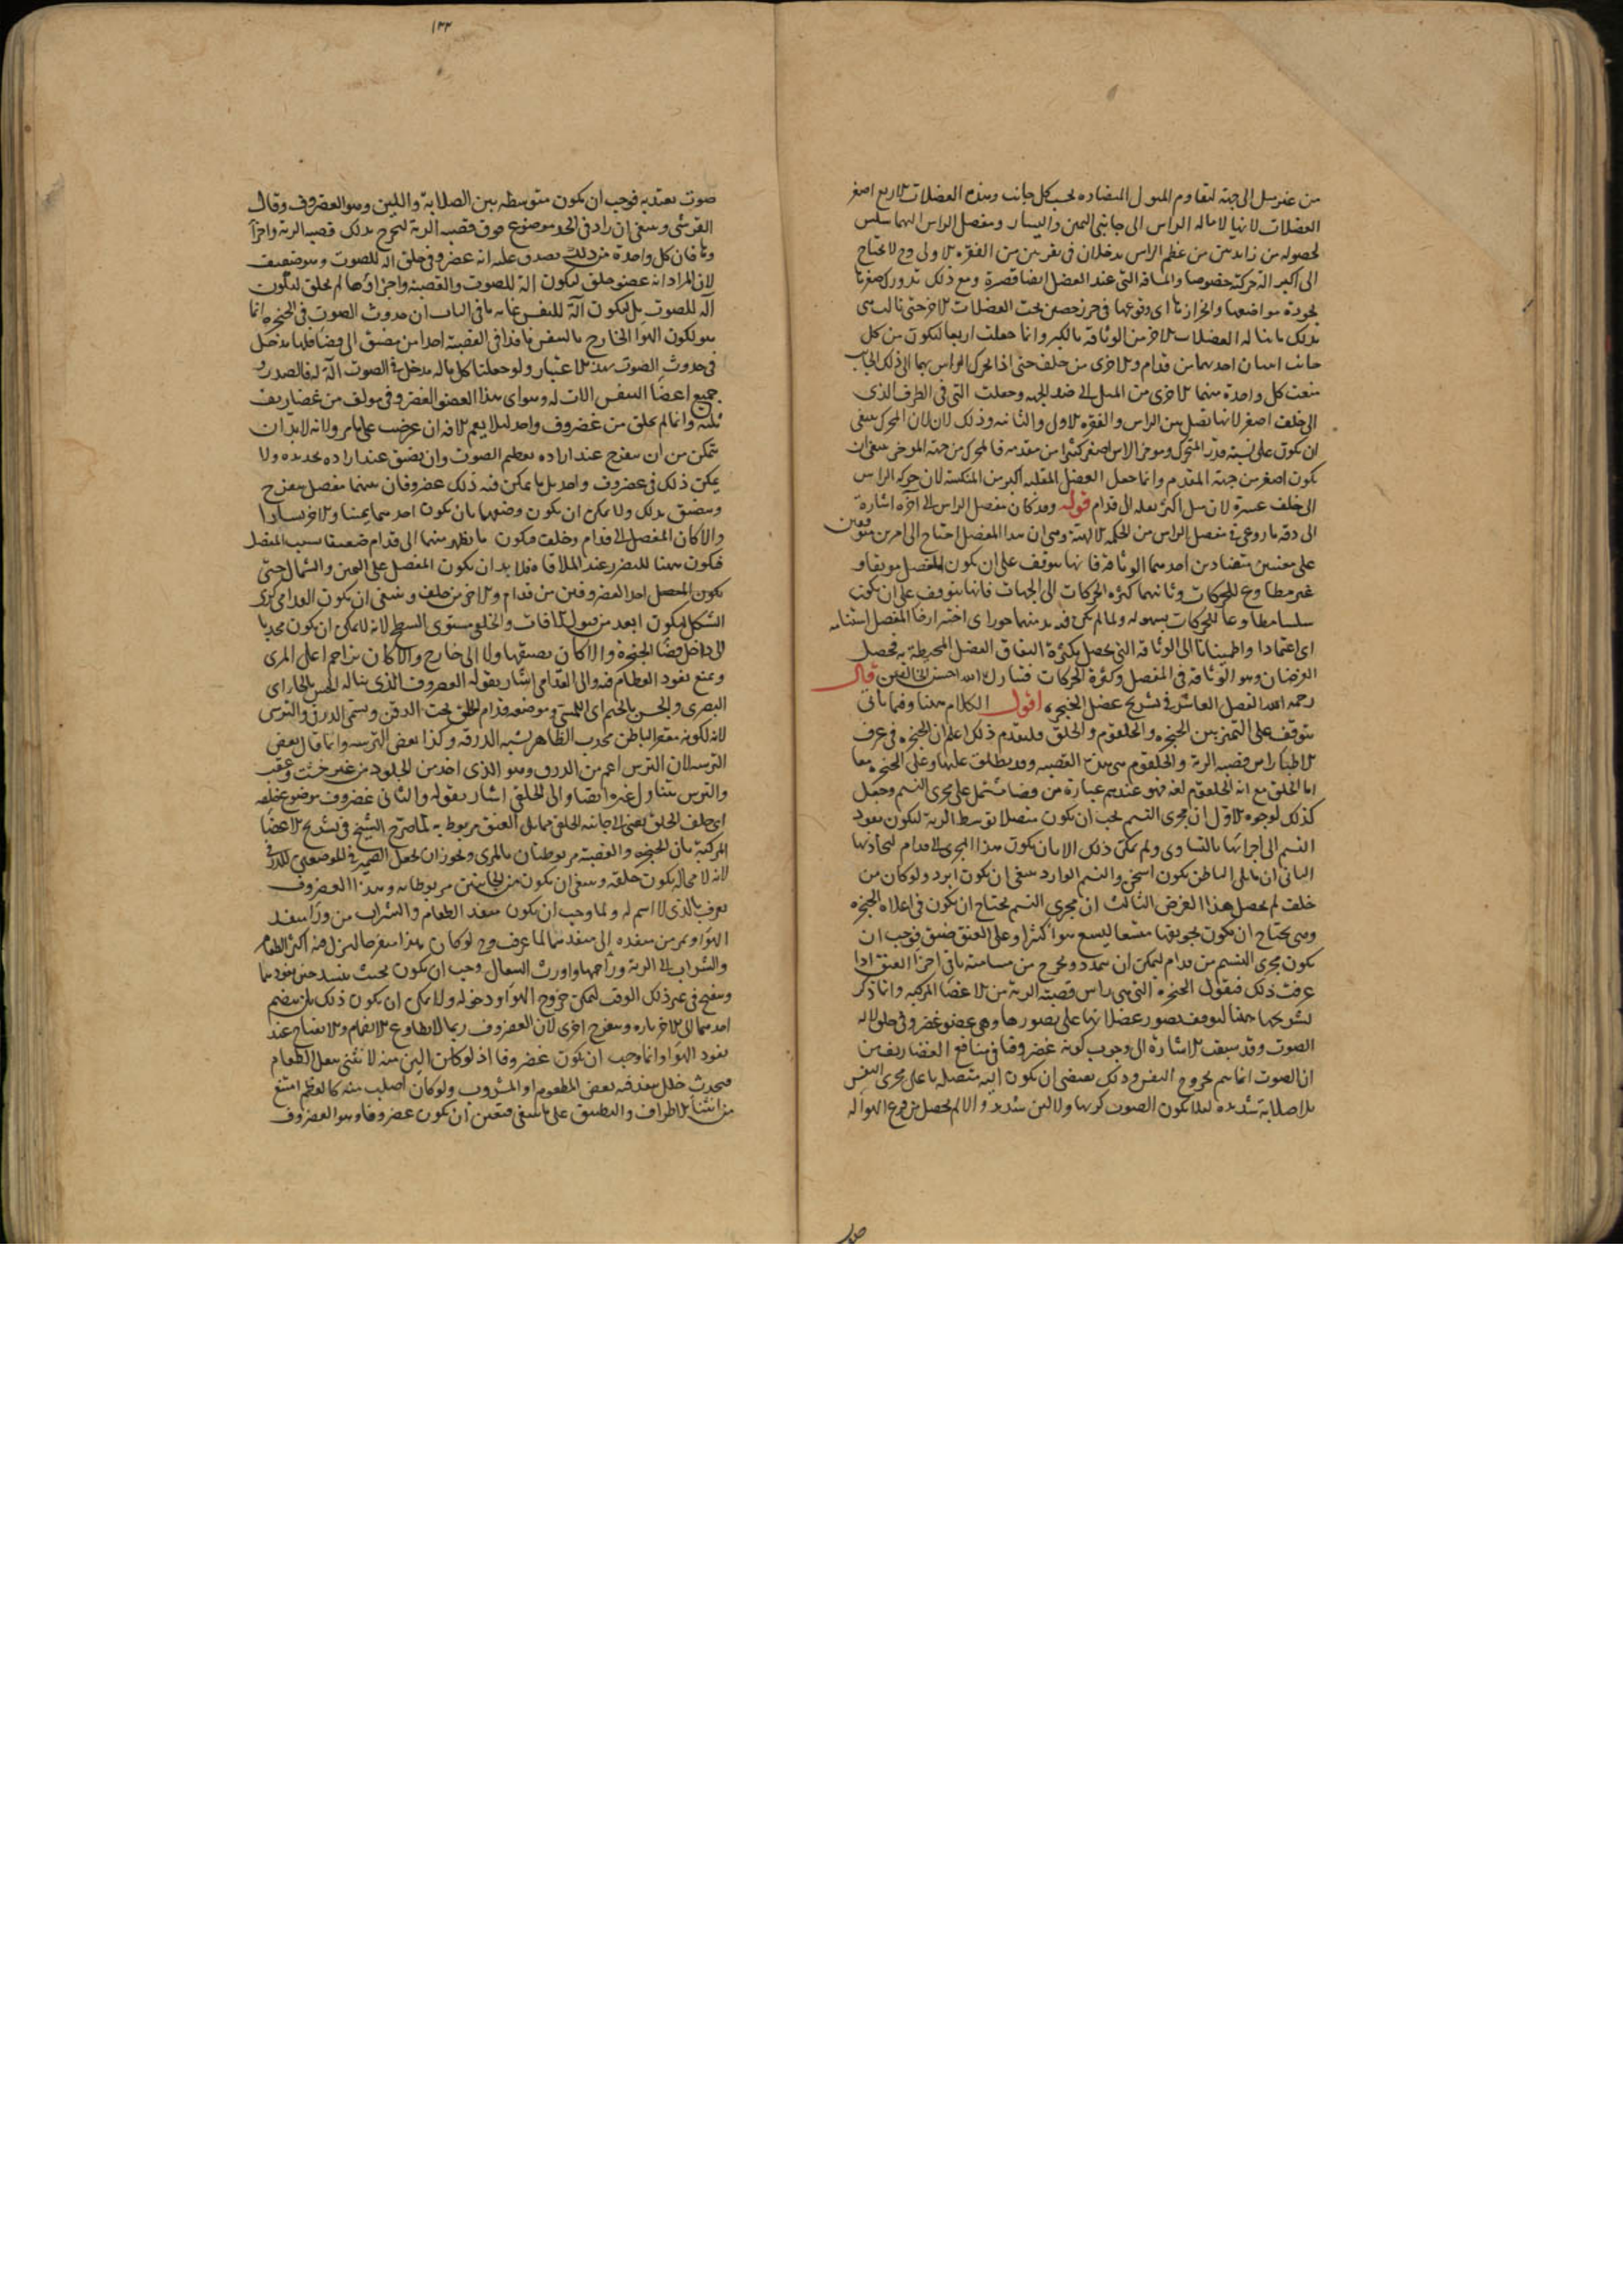 من غير ميل الى جهة لتقاوم الميول المتضاده بحسب كل جانب وهذه العضلات الاربع اصغر
العضلات لانها لاماله الراس الى جانبى اليمين واليسار ومفصل الراس اليهما سلس
لحصوله من زايدتين من عظم الراس يدخلان فى نقرتين من الفقره الاولى وح لا يحتاج
الى اكبر اله حركة خصوصا والمسافه التى عند العضل ايضا قصيرة ومع ذلك تدورك صغرها
بجودة مواضعها واحرازها اى وقوعها فى حرز حصين تحت العضلات الاخر حتى نالت هى
بذلك ما ناله العضلات الاخر من الوثاقه بالكبر وانما جعلت اربعا لتكون من كل
جانب اثنتان احديهما من قدام والاخرى من خلف حتى اذا تحرك الراس بهما الى ذلك الجانب
منعت كل واحدة منهما الاخرى من الميل الى ضد الجهه وجعلت التى فى الطرف الذى
الى خلف اصغر لانها تصل بين الراس والفقره الاولى والثانيه وذلك لان المحرك ينبغى
ان يكون على نسبة قدر المتحرك وموخر الراس اصغر كثيرا من مقدمه فالمحرك من جهة الموخر ينبغى ان
يكون اصغر من جهة المقدم وانما جعل العضل المقلبه اكبر من المنكسه لان حركه الراس
الى خلف عسرة لان ميل اكثر ثقله الى قدام قوله وقد كان مفصل الراس الى آخره اشارة
الى دقه ما روعى فى مفصل الراس من الحكمه الالهية وهى ان هذا المفصل احتاج الى امرين متوقفين
على معنيين متضادين احدهما الوثاقه فانها يتوقف على ان يكون المفصل موثقا و
غير مطاوع للحركات وثانيهما كثرة الحركات الى الجهات فانها يتوقف على ان يكون
سلسا مطاوعا للحركات بسهوله ولما لم يكن فيه بد منهما جوز اى اختير ارخا المفصل استنامه
اى اعتمادا واطمينانا الى الوثاقه التى تحصل بكثرة التفاف العضل المحيطة به فحصل
الغرضان وهو الوثاقة فى المفصل وكثرة الحركات فتبارك الله احسن الخالقين قال
رحمه الله الفصل العاشر فى تشريح عضل الحنجره اقول الكلام ههنا وفيما ياتى
يتوقف على التميز بين الحنجره والحلقوم والحلق فليتقدم ذلك اعلم ان الحنجره فى عرف
الاطبا راس قصبه الرية والحلقوم هى هذه القصبه وقد يطلق عليها وعلى الحنجره معا
اما الحلق مع انه الحلقوم لغة فهو عندهم عبارة من فضا مشتمل على مجرى النسيم وجعل
كذلك لوجوه الاول ان مجرى النسيم يجب ان يكون متصلا بوسط الرية ليكون نفود
النسيم الى اجزائها بالتساوى ولم يمكن ذلك الا بان يكون هذا المجرى الى قدام ليحاذيها
الثانى ان ما يلى الباطن يكون اسخن والنسيم الوارد ينبغى ان يكون ابرد ولو كان من
خلف لم يحصل هذا الغرض الثالث ان مجرى النسيم يحتاج ان يكون فى اعلاه الحنجره
وهى تحتاج ان يكون تجويفها متسعا ليسع هوا كثيرا وعلى العنق ضيق فوجب ان
يكون مجرى النسيم من قدام ليمكن ان يتمدد ويخرج من مسامتة باقى اجزا العنق اذا
عرفت ذلك فنقول الحنجره التى هى راس قصبة الرية من الاعضا المركبه وانما ذكر
تشريحها ههنا لتوقف تصور عضلاتها على تصورها وهى عضو غضروفى خلق لاله
الصوت وقد سبقت الاشارة الى وجوب كونه غضروفا فى منافع الغضاريف من
ان الصوت انما يتم بخروج النفس وذلك يقتضى ان يكون آلته متصله باعلى مجرى النفس
بلا صلابة شديده لئلا يكون الصوت كريها ولا لين شديد والا لم يحصل من قرع الهوا له
١٣٣
صوت يعتد به فوجب ان يكون متوسطه بين الصلابة واللين وهو الغضروف وقال
القرشى وينبغى ان يزاد فى الحد موضوع فوق قصبه الرية ليخرج بذلك قصبه الرية واجزا
وها فان كل واحدة من ذلك يصدق عليه انه عضو غضروفى خلق آلة للصوت وهو ضعيف
لان المراد انه عضو خلق ليكون آلة للصوت والقصبة واجزاؤها لم يخلق ليكون
آلة للصوت بل ليكون آلة للتنفس غايه ما فى الباب ان حدوث الصوت فى الحنجره انما
هو لكون الهوا الخارج بالتنفس نافذا فى القصبة اخذا من مضيق الى فضا فلها مدخل
فى حدوث الصوت بهذا الاعتبار ولو جعلنا كل ماله مدخل فى الصوت آلة له فالصدر و
جميع اعضا التنفس الات له وهو اى هذا العضو الغضروفى مولف من غضاريف
ثلثه وانما لم يخلق من غضروف واحد لئلا يعم الافه ان عرضت على ما مر ولانه لا بد ان
يتمكن من ان ينفرج عند اراده تعظيم الصوت وان يضيق عند اراده تحديده ولا
يمكن ذلك فى غضروف واحد بل ما يمكن فيه ذلك غضروفان بينهما مفصل ينفرج
ويضيق بذلك ولا يمكن ان يكون وضعهما بان يكون احدهما يمينا والاخر يسارا
والا كان المفصل الى قدام وخلف فيكون ما يظهر منهما الى قدام ضعيفا بسبب المفصل
فيكون مهيئا للتضرر عند الملاقاه فلا بد ان يكون المفصل على اليمين والشمال حتى
يكون المحصل احد الغضروفين من قدام والاخر من خلف وينبغى ان يكون القدامى كرى
الشكل ليكون ابعد من قبول الافات والخلفى مستوى السطح لانه لا يمكن ان يكون محدبا
الى داخل فضا الحنجرة والا كان يضيقها ولا الى خارج والا كان يزاحم اعلى المرى
ويمنع نفود الطعام فيه والى القدامى اشار بقوله الغضروف الذى يناله الحس بالجا اى
البصرى والجس بالجيم اى اللمسى وموضعه قدام الحلق تحت الذقن ويسمى الدرقى والترسى
لانه لكونه مقعر الباطن محدب الظاهر يشبه الدرقه وكذا بعض الترسه وانما قال بعض
الترسه لان الترس اعم من الدرق وهو الذى اخذ من الجلود من غير خشب وعقب
والترس يتناول غيره ايضا والى الخلفى اشار بقوله والثانى غضروف موضوع خلفه
اى خلف الحلق يعنى الى جانبه الخلفى مما يلى العنق مربوط به لما صرح الشيخ فى تشريح الاعضا
المركبه بان الحنجره والقصبة مربوطتان بالمرى ويجوز ان يجعل الضمير فى الموضعين للدرقى
لانه لا محاله يكون خلفه وينبغى ان يكون من الجانبين مربوطا به وهذا الغضروف
يعرف بالذى لا اسم له ولما وجب ان يكون منفذ الطعام والشراب من ورا منفذ
الهوا وممر من منفذه الى منفذهما لما عرف وح لو كان هذا منفرجا لنزل منه اكثر الطعام
والشراب الى الرية وزاحمها واورث السعال وجب ان يكون بحيث ينسد حين نفودهما
وينفتح فى غير ذلك الوقت ليمكن خروج الهوا ودخوله ولا يمكن ان يكون ذلك بان ينضم
احدهما الى الاخر تارة وينفرج اخرى لان الغضروف ربما لا يطاوع الانضمام والانفتاح عند
نفود الهوا وانما وجب ان يكون غضروفا اذ لو كان الين منه لانثنى بثقل الطعام
فيحدث خلل ينفذ فيه بعض المطعوم او المشروب ولو كان اصلب منه كالعظم امتنع
من انثنا الاطراف والتطبيق على ما ينبغى فتعين ان يكون غضروفا وهو الغضروف